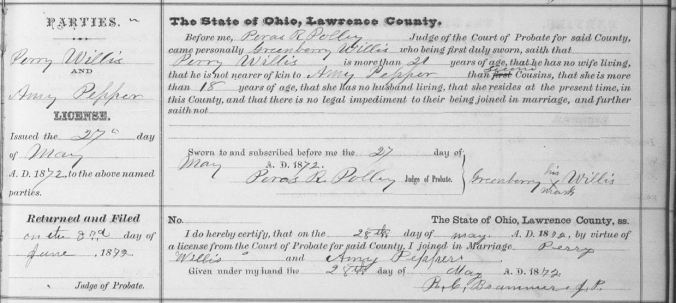 PARTIES.
Perry Willis
AND
Amy Pepper
LICENSE.
Issued the 27" day
of May
A. D. 1872 to the above named
parties.
Returned and Filed
on the 3rd day of
June 1872
Judge of Probate.
The State of Ohio, Lawrence County.
Before me, Peras R Polley Judge of the Court of Probate for said County,
came personally Greenberry Willis who being first duly sworn, saith that
Perry Willis is more than 21 years of age, that he has no wife living,
that he is not nearer of kin to Amy Pepper than second first Cousins, that she is more
than 18 years of age, that she has no husband living, that she resides at the present time, in
this County, and that there is no legal impediment to their being joined in marriage, and further
saith not
Sworn to and subscribed before me the 27 day of
May A. D. 1872.
Peras R. Polley Judge of Probate.
Greenberry his X mark Willis
No. The State of Ohio, Lawrence County, ss.
I do hereby certify, that on the 28th day of May A. D. 1872, by virtue of
a license from the Court of Probate for said County, I joined in Marriage Perry
Willis and Amy Pepper
Given under my hand the 28th day of May A. D. 1872.
R. C. Brammer J. P.